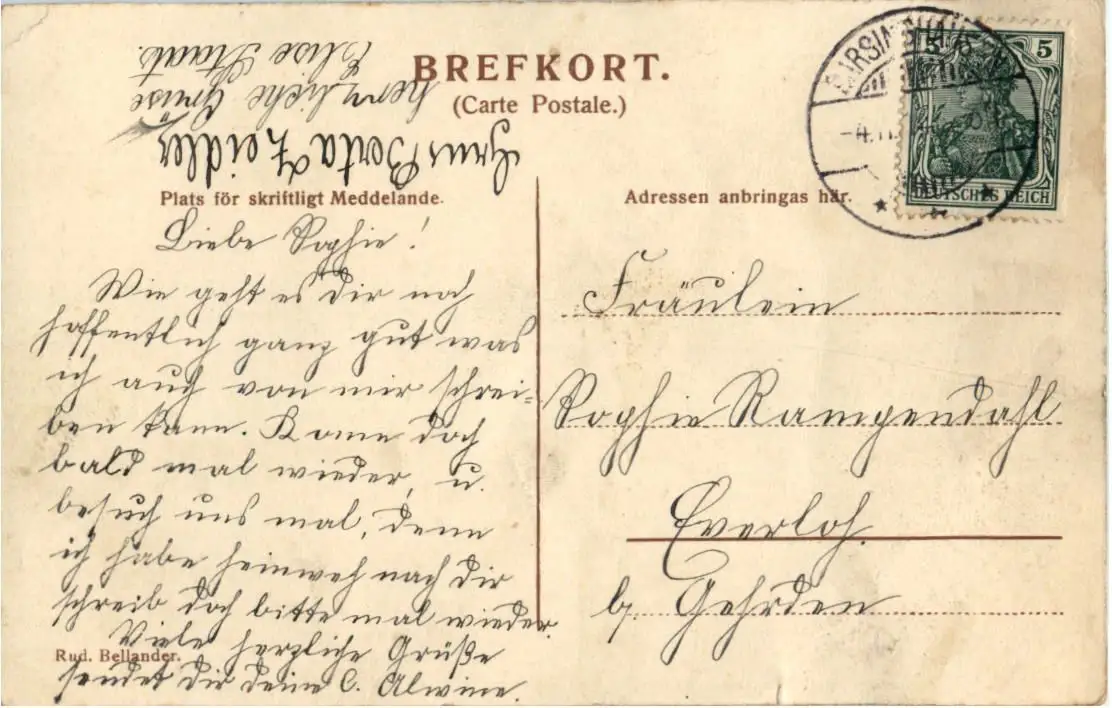 BREFKORT.
(Carte Postale.)
Gruss Berta Zeidler
herzliche Grüse
Elise Staats.
Plats för skriftligt Meddelande.
Liebe Sophie!
Wie geht es dir noch
hoffentlich ganz gut was
ich auch von mir schrei-
ben kann. Kome doch
bald mal wieder, u.
besuch uns mal, denn
ich habe heinweh nach dir
schreib doch bitte mal wieder.
Viele herzliche Grüße
sendet dir deine C. Alwine.
Rud. Bellander.
Adressen anbringas här.
Fräulein
Sophie Rampendahl
Everloh.
b. Gehrden
BARSINGHAUSEN
-4.11.
5 5
DEUTSCHES REICH